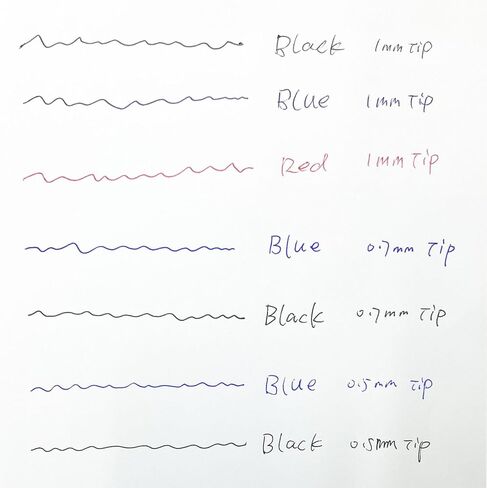 Black 1mm Tip
Blue 1mm Tip
Red 1mm Tip
Blue 0.7mm Tip
Black 0.7mm Tip
Blue 0.5mm Tip
Black 0.5mm Tip